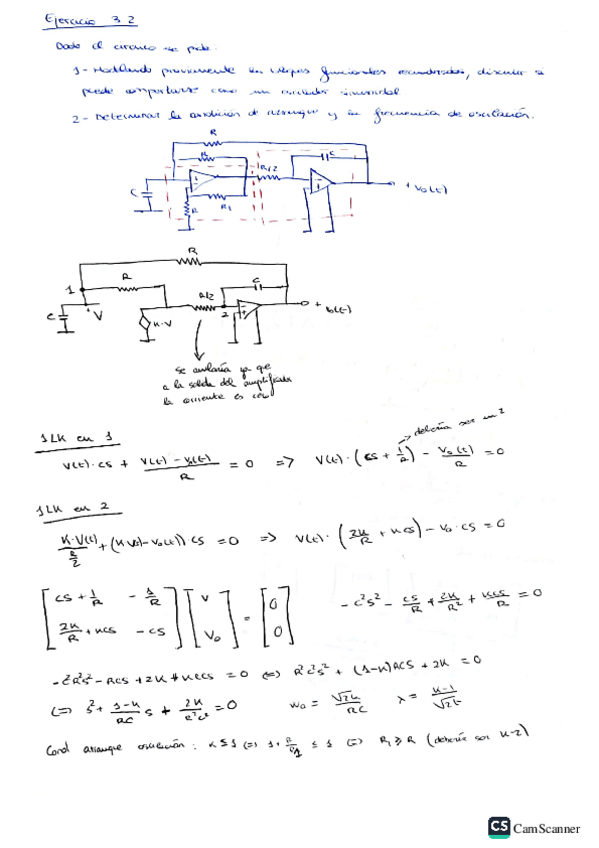 Ejercicio 3.2
Dado el circuito se pide:
1- Modelando previamente los bloques funcionales recuadrados, discutir si
puede comportarse como un oscilador sinusoidal
2- Determinar la condición de arranque y la frecuencia de oscilación.
R
R
R/2
C
C
R
R1
+ Vo(t)
R
R
1
C
V
K·V
R/2
2
C
+ Vo(t)
se anularía ya que
a la salida del amplificador
la corriente es cero
1LK en 1
debería ser un 2
V(t)·CS + (V(t) - Vo(t))/R = 0 => V(t)·(CS + 1/R) - Vo(t)/R = 0
1LK en 2
K·V(t)/(R/2) + (K V(t) - Vo(t)) CS = 0 => V(t)·(2K/R + KCS) - Vo·CS = 0
[CS + 1/R -1/R; 2K/R + KCS -CS] [V; Vo] = [0; 0] -C²S² - CS/R + 2K/R² + KCS/R = 0
-C²R²S² - RCS + 2K + KRCS = 0 <=> R²C²S² + (1-K)RCS + 2K = 0
<=> S² + (1-K)/RC S + 2K/R²C² = 0 Wo = √2K/RC λ = (K-1)/√2K
Cond arranque oscilación: K ≤ 1 <=> 1 + R/R1 ≤ 1 <=> R1 ≥ R (debería ser K-2)
CS CamScanner